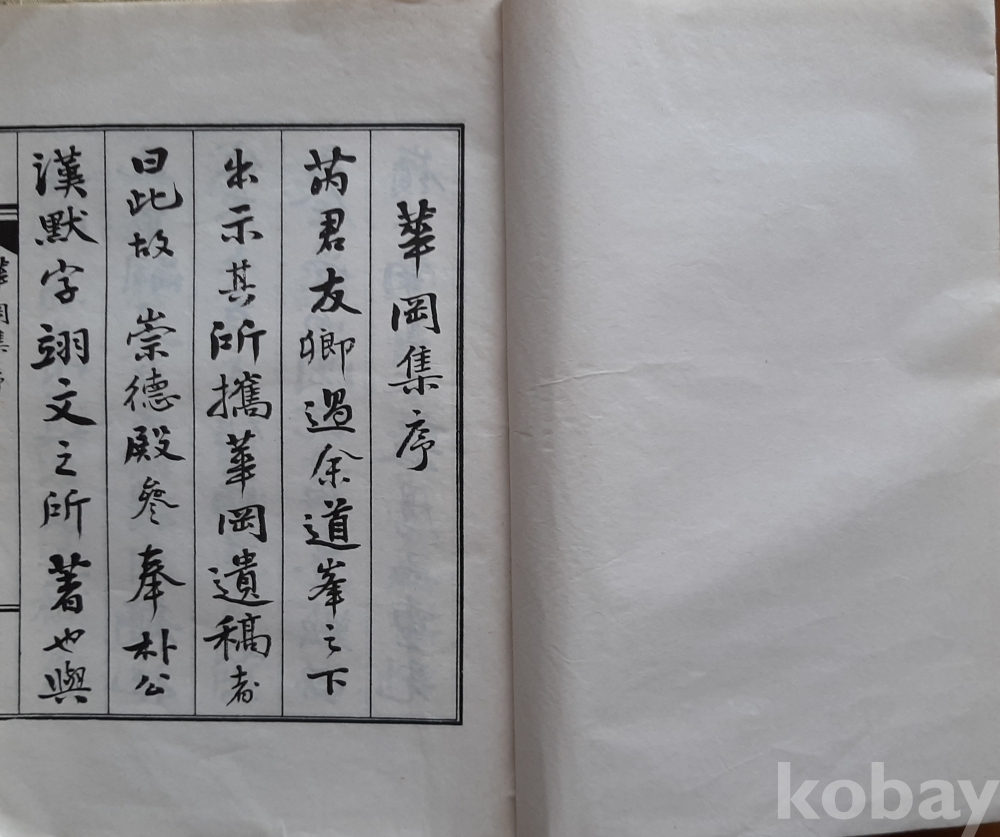 華岡集序
芮君友卿過余道峯之下
出示其所攜華岡遺稿者
曰此故 崇德殿參奉朴公
漢默字翊文之所著也與
華岡集序
kobay